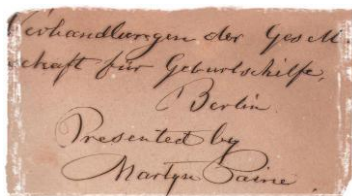 Verhandlungen der Gesell-
schaft für Geburtshilfe,
Berlin.
Presented by
Martyn Paine.